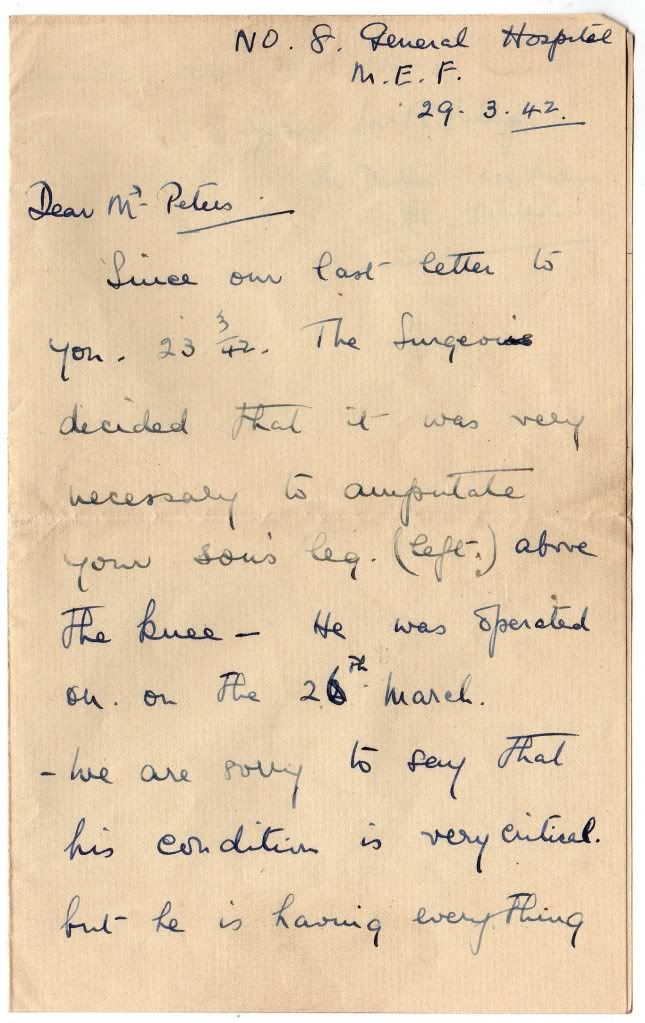 NO. 8. General Hospital
M. E. F.
29. 3. 42.
Dear Mrs Peters.
Since our last letter to
you. 23 3/42. The Surgeon
decided that it was very
necessary to amputate
your son's leg. (left.) above
the knee — He was operated
on. on the 26th March.
- We are sorry to say that
his condition is very critical.
but he is having everything